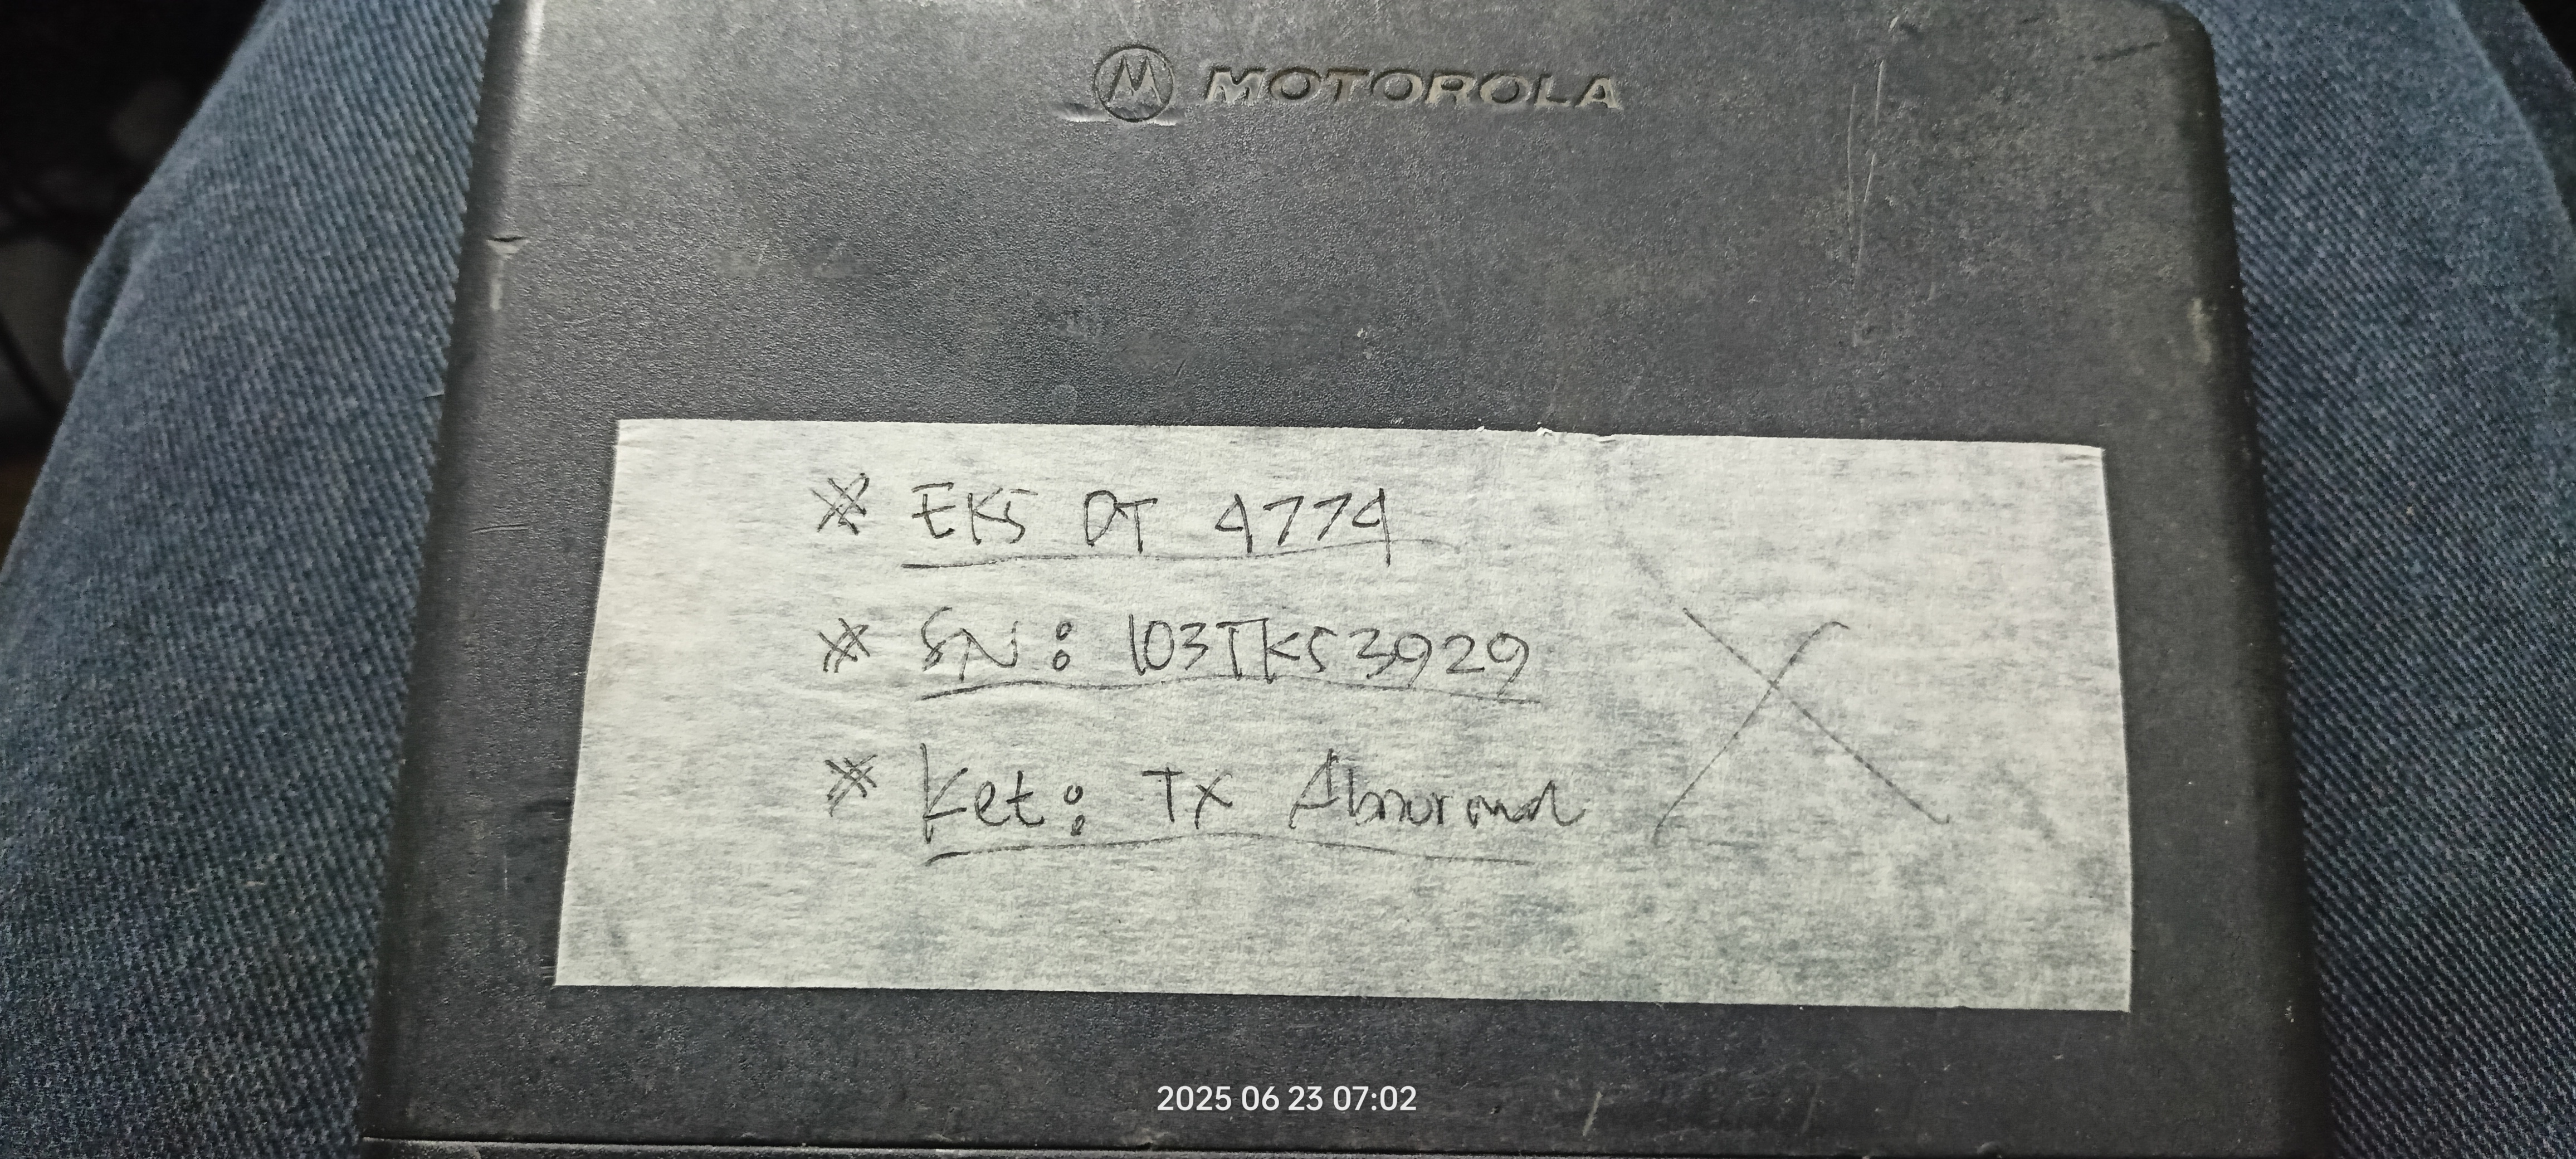 MOTOROLA
※ EKS DT 4774
※ SN: 103TKS3929
※ Ket: TX Abnormal
2025 06 23 07:02